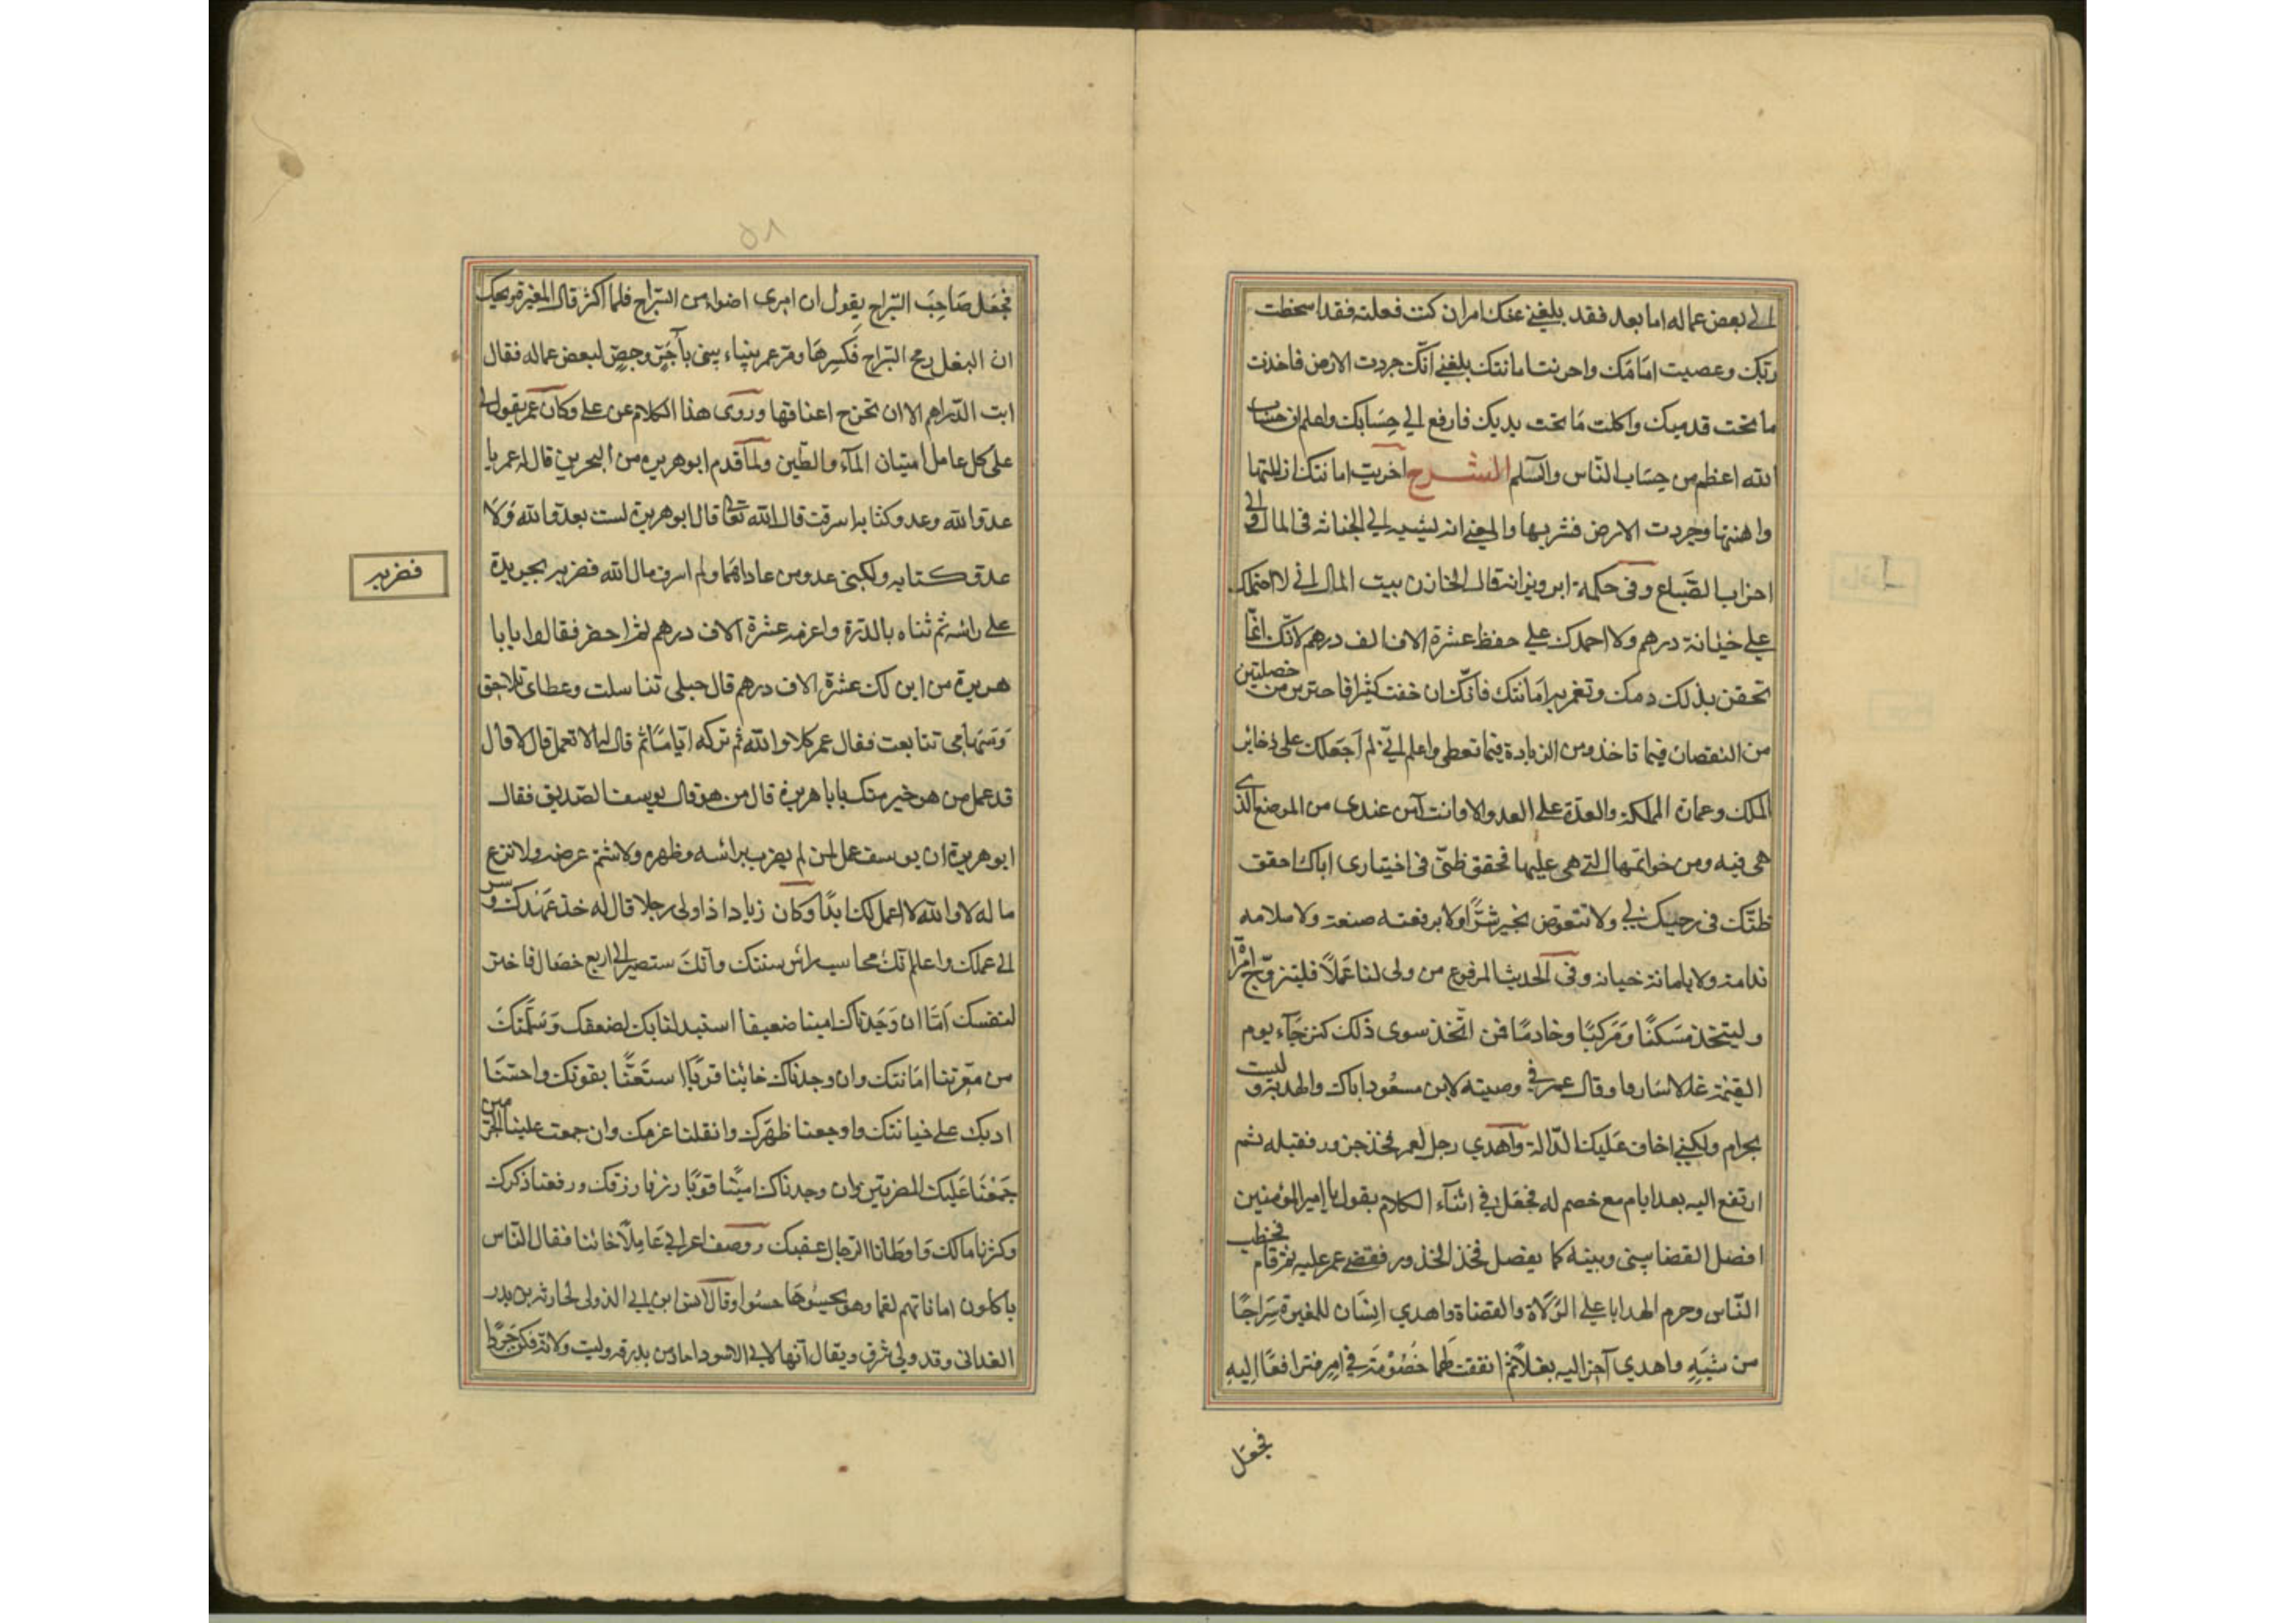 الى بعض عماله اما بعد فقد بلغنى عنك امر ان كنت فعلته فقد اسخطت
ربك وعصيت امامك واخربت امانتك بلغنى انك جردت الارض فاخذت
ما تحت قدميك واكلت ما تحت يديك فارفع الى حسابك واعلم ان حساب
الله اعظم من حساب الناس والسلم الشرح اخربت امانتك اذللتها
واهنتها وجردت الارض قشربها والمعنى انه نسبه الى الخيانة فى المال والى
اخراب الضياع وفى حكمة ابرويز انه قال لخازن بيت المال انى لا احتملك
على خيانة درهم ولا احمدك على حفظ عشرة الاف الف درهم لانك انما
تحقن بذلك دمك وتعمر به امانتك فانك ان خنت كثيرا فاحترس من خصلتين
من النقصان فيما تاخذ ومن الزيادة فيما تعطى واعلم انى لم اجعلك على ذخاير
الملك وعمارة المملكة والعدة على العدو الا وانت آمن عندى من الموضع الذى
هى فيه ومن خواتمها التى هى عليها فحقق ظنى فى اختيارى اياك احقق
ظنك فى رجيك لى ولا تتعوض بخير شرا ولا برفعة صنعة ولا سلامه
ندامة ولا بامانة خيانه وفى الحديث المرفوع من ولى لنا عملا فليتزوج امراة
وليتخذ مسكنا ومركبا وخادما فمن اتخذ سوى ذلك كنز جاء يوم
القيمة غلالا سارقا وقال عمر فى وصيته لابن مسعود اياك والهدية وليست
بحرام ولكنى اخاف عليك الدالة واهدي رجل لعمر فخذ جزور فقبله ثم
ارتفع اليه بعد ايام مع خصم له فجعل فى اثناء الكلام يقول يا امير المؤمنين
افصل القضا بينى وبينه كما يفصل فخذ الجزور فقضى عمر عليه ثم قام فخطب
الناس وحرم الهدايا على الولاة والقضاة واهدي انسان للمغيرة سراجا
من شبه واهدي آخر اليه بغلا ثم اتفقت لهما خصومة فى امر فترافعا اليه
فجعل
٥٨
فجعل صاحب السراج يقول ان امرى اضوا من السراج فلما اكثر قال المغيرة ويحك
ان البغل رمح السراج فكسرها ومر عمر ببناء يبنى بآجر وجص لبعض عماله فقال
ابت الدراهم الا ان تخرج اعناقها وروى هذا الكلام عن على وكان عمر يقول لى
على كل عامل امينان المآء والطين ولما قدم ابو هريره من البحرين قال له عمر يا
عدو الله وعدو كتابه اسرقت قال الله تعالى قال ابو هريرة لست بعدو الله ولا
عدو كتابه ولكبنى عدو من عاداهما ولم اسرق مال الله فضربه بجريدة
فضربه
على راسه ثم ثناه بالدرة واغرمه عشرة آلاف درهم ثم احضر فقال له يا با
هريرة من اين لك عشرة الاف درهم قال خيلى تناسلت وعطاى تلاحق
وسهامى تتابعت فقال عمر كلا والله ثم تركه اياما ثم قال له الا تعمل قال لا قال
قد عمل من هو خير منك يا با هريرة قال من هو قال يوسف الصديق فقال
ابو هريرة ان يوسف عمل لمن لم يضرب براسه وظهره ولا شتم عرضه ولا نزع
ماله لا والله لا اعمل لك ابدا وكان زياد اذا ولى رجلا قال له خذ عهدك وسر
الى عملك واعلم انك محاسب راس سنتك وانك ستصير الى اربع خصال فاختر
لنفسك اما ان وجدناك امينا ضعيفا استبدلنا بك لضعفك وسلمتك
من معرتنا امانتك وان وجدناك خائنا قويا استعنا بقوتك واحسنا
ادبك على خيانتك واوجعنا ظهرك واثقلنا غرمك وان جمعت علينا الجرمين
جمعنا عليك المضرتين وان وجدناك امينا قويا زدنا رزقك ورفعنا ذكرك
وكثرنا مالك واوطانا الرجال عقبك ووصف اعرابى عاملا خائنا فقال الناس
ياكلون اماناتهم لقما وهو يحسوها حسوا وقال انس ابن ابى الدولى لحارثه بن بدر
الغدانى وقد ولى شرق ويقال انها لابى الاسود احار بن بدر قد وليت ولاية فكن جرذا